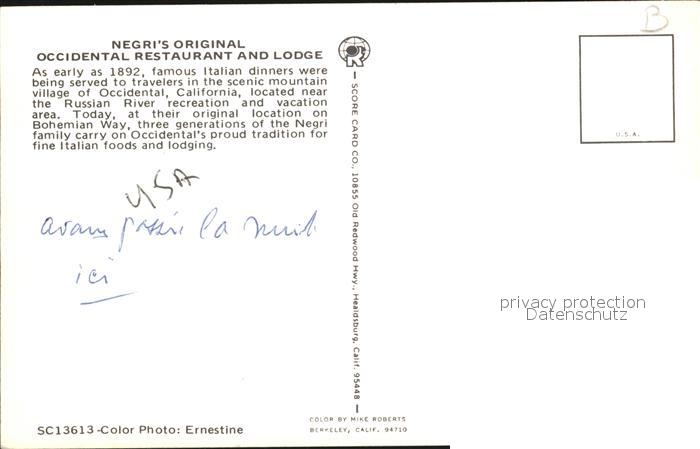 B
NEGRI'S ORIGINAL
OCCIDENTAL RESTAURANT AND LODGE
As early as 1892, famous Italian dinners were
being served to travelers in the scenic mountain
village of Occidental, California, located near
the Russian River recreation and vacation
area. Today, at their original location on
Bohemian Way, three generations of the Negri
family carry on Occidental's proud tradition for
fine Italian foods and lodging.
USA
avons passé la nuit
ici
SC13613-Color Photo: Ernestine
R
SCORE CARD CO., 10855 Old Redwood Hwy., Healdsburg, Calif. 95448
COLOR BY MIKE ROBERTS
BERKELEY, CALIF. 94710
U.S.A.
privacy protection
Datenschutz